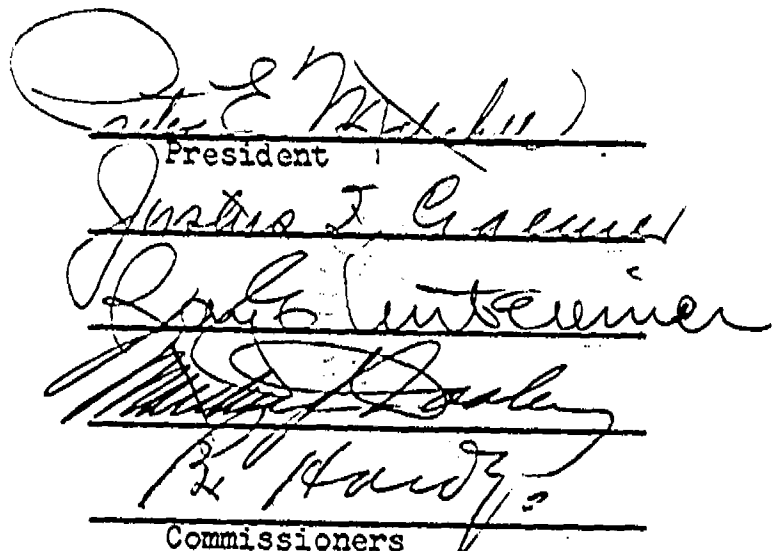 Peter E. Mitchell
President
Justus F. Craemer
Ray E. Untereiner
Matthew J. Dooley
R. Hardy
Commissioners